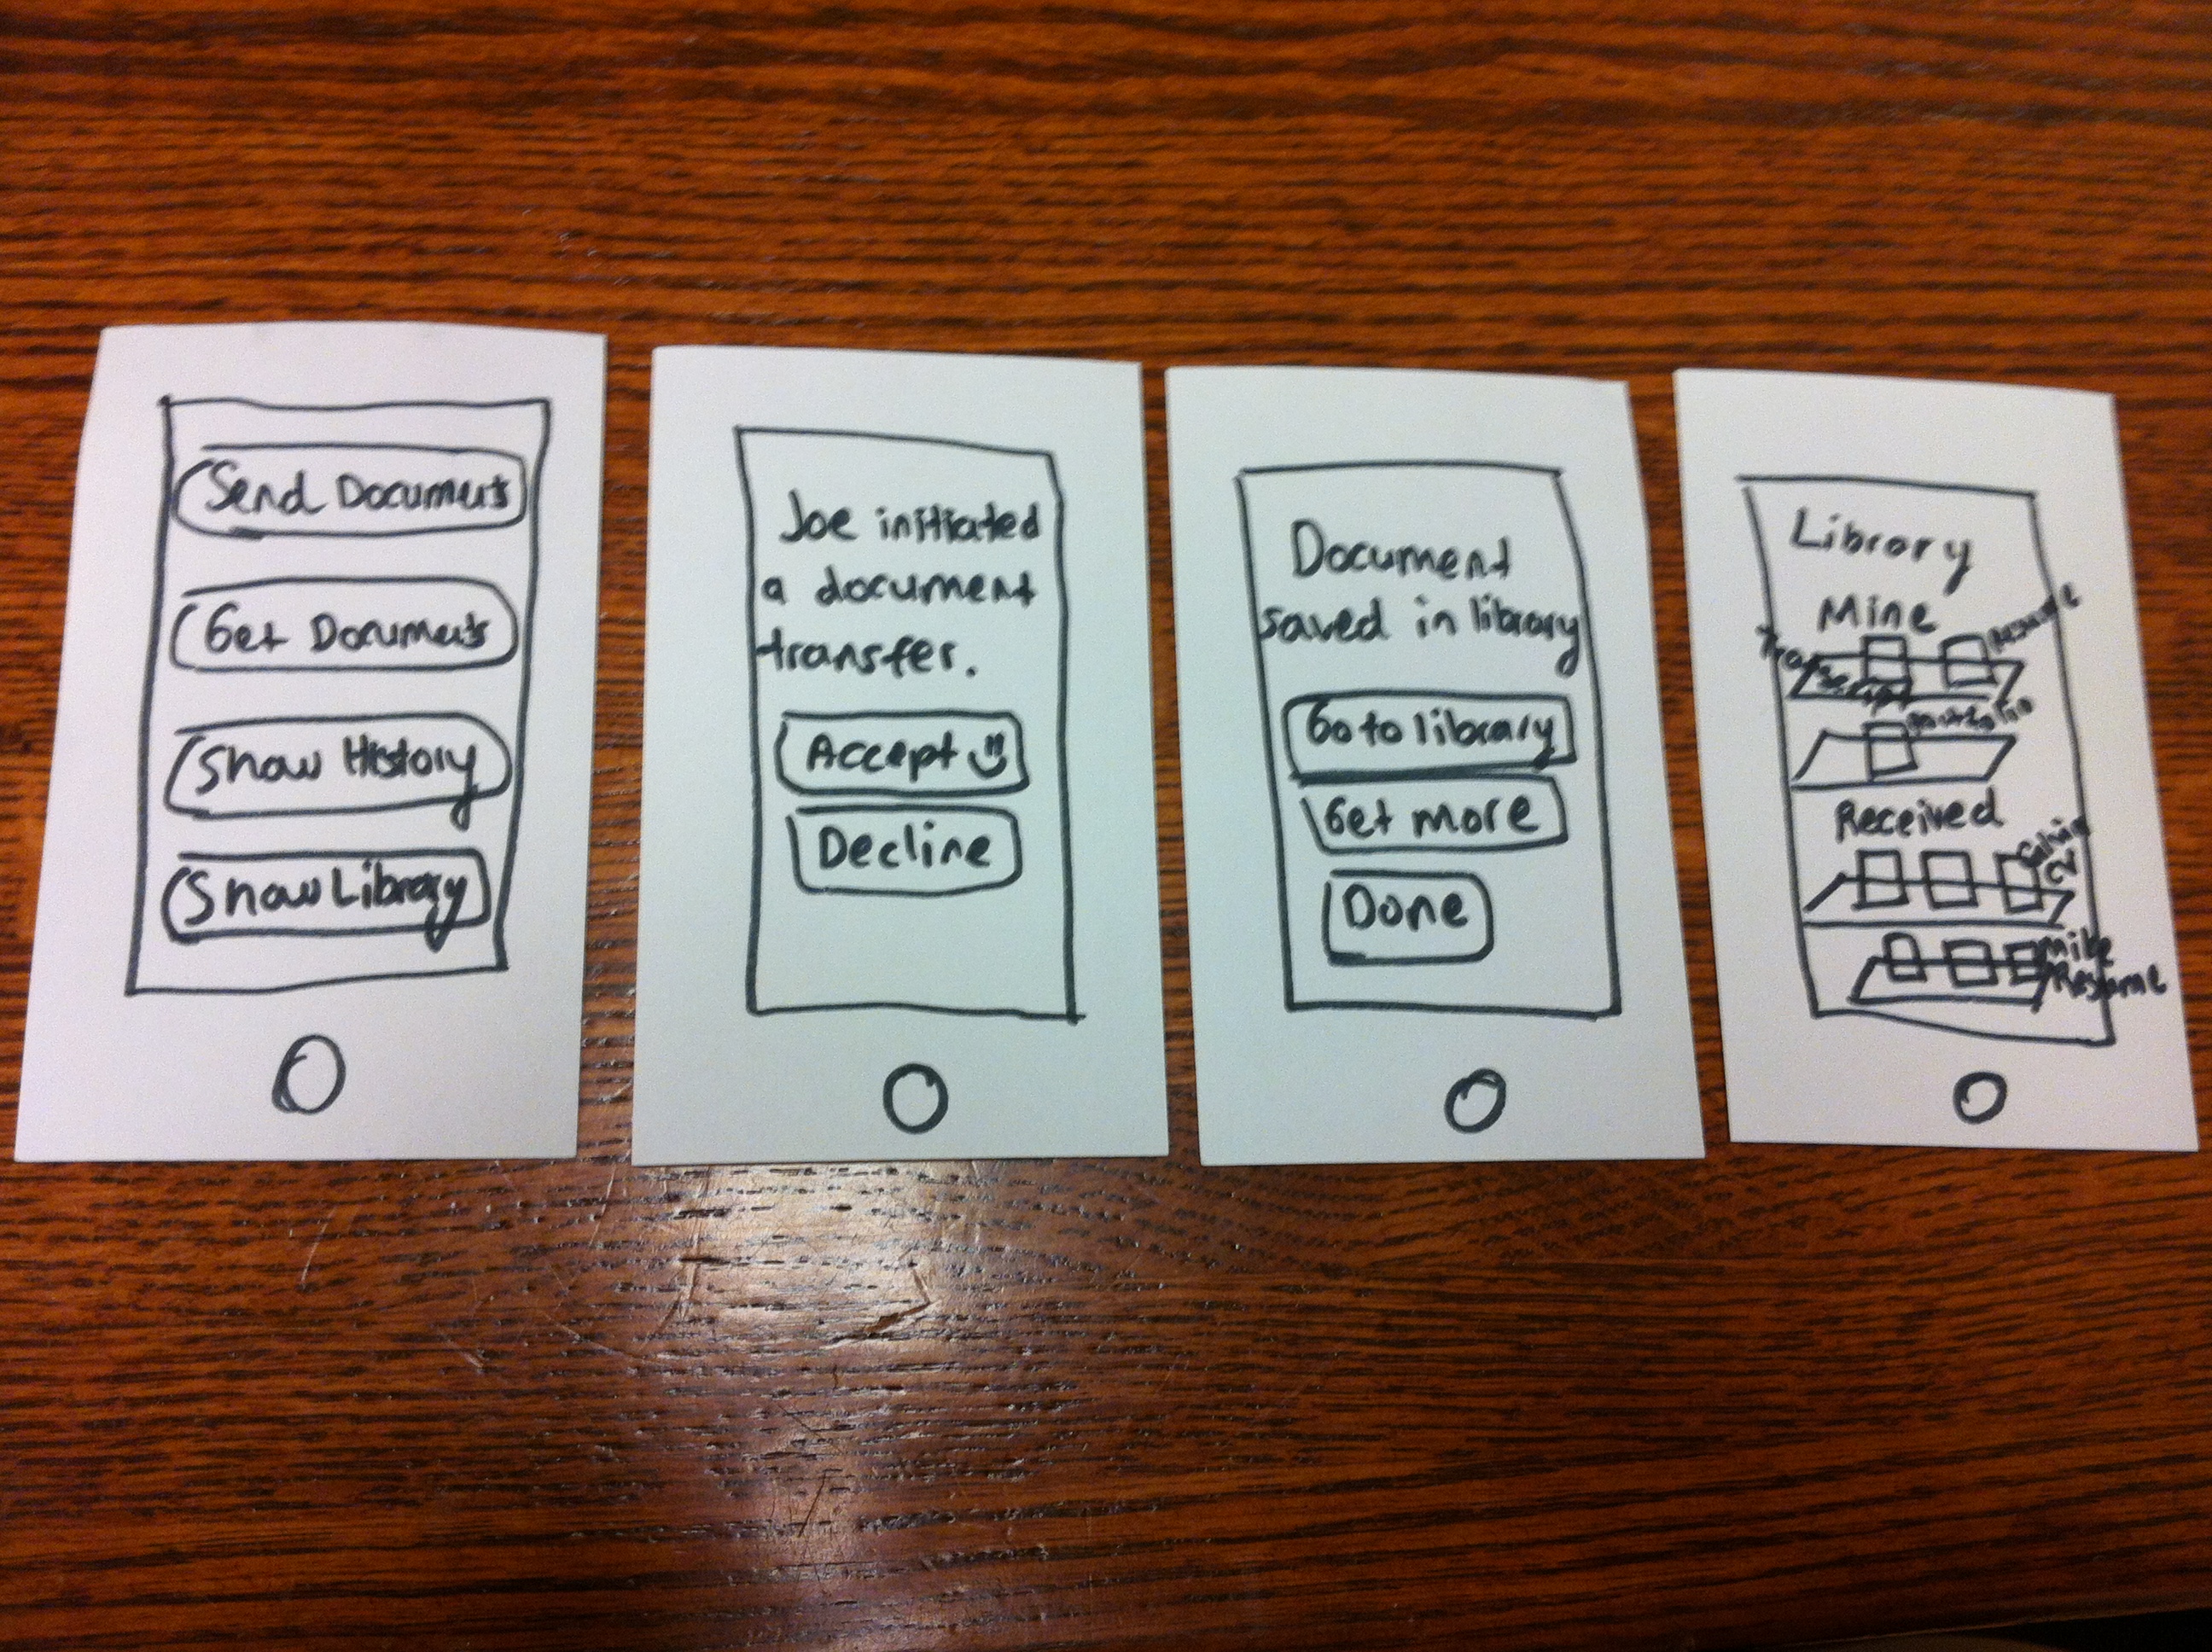 Send Documents
Get Documents
Show History
Show Library
Joe initiated
a document
transfer.
Accept
Decline
Document
saved in library
Go to library
Get more
Done
Library
Mine
Transcript
Resume
Portfolio
Received
CV
Mike
Resume